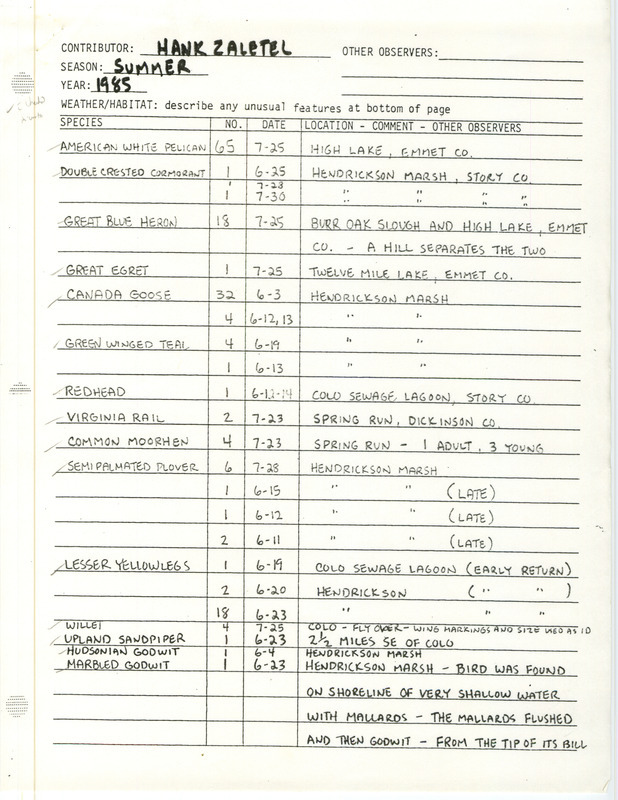 CONTRIBUTOR: HANK ZALETEL OTHER OBSERVERS:
SEASON: SUMMER
YEAR: 1985
WEATHER/HABITAT: describe any unusual features at bottom of page
SPECIES NO. DATE LOCATION - COMMENT - OTHER OBSERVERS
AMERICAN WHITE PELICAN 65 7-25 HIGH LAKE, EMMET CO.
DOUBLE CRESTED CORMORANT 1 6-25 HENDRICKSON MARSH, STORY CO.
1 7-23
1 7-30 " " " "
GREAT BLUE HERON 18 7-25 BURR OAK SLOUGH AND HIGH LAKE, EMMET
CO. - A HILL SEPARATES THE TWO
GREAT EGRET 1 7-25 TWELVE MILE LAKE, EMMET CO.
CANADA GOOSE 32 6-3 HENDRICKSON MARSH
4 6-12,13 " "
GREEN WINGED TEAL 4 6-19 " "
1 6-13 " "
REDHEAD 1 COLO SEWAGE LAGOON, STORY CO.
VIRGINIA RAIL 2 7-23 SPRING RUN, DICKINSON CO.
COMMON MOORHEN 4 7-23 SPRING RUN - 1 ADULT, 3 YOUNG
SEMIPALMATED PLOVER 6 7-28 HENDRICKSON MARSH
1 6-15 " " (LATE)
1 6-12 " " (LATE)
2 6-11 " " (LATE)
LESSER YELLOWLEGS 1 6-19 COLO SEWAGE LAGOON (EARLY RETURN)
2 6-20 HENDRICKSON ( " " )
18 6-23 " " "
WILLET 4 7-25 COLO - FLY OVER - WING MARKINGS AND SIZE USED AS ID
UPLAND SANDPIPER 1 6-23 2½ MILES SE OF COLO
HUDSONIAN GODWIT 1 6-4 HENDRICKSON MARSH
MARBLED GODWIT 1 6-23 HENDRICKSON MARSH - BIRD WAS FOUND
ON SHORELINE OF VERY SHALLOW WATER
WITH MALLARDS - THE MALLARDS FLUSHED
AND THEN GODWIT - FROM THE TIP OF ITS BILL